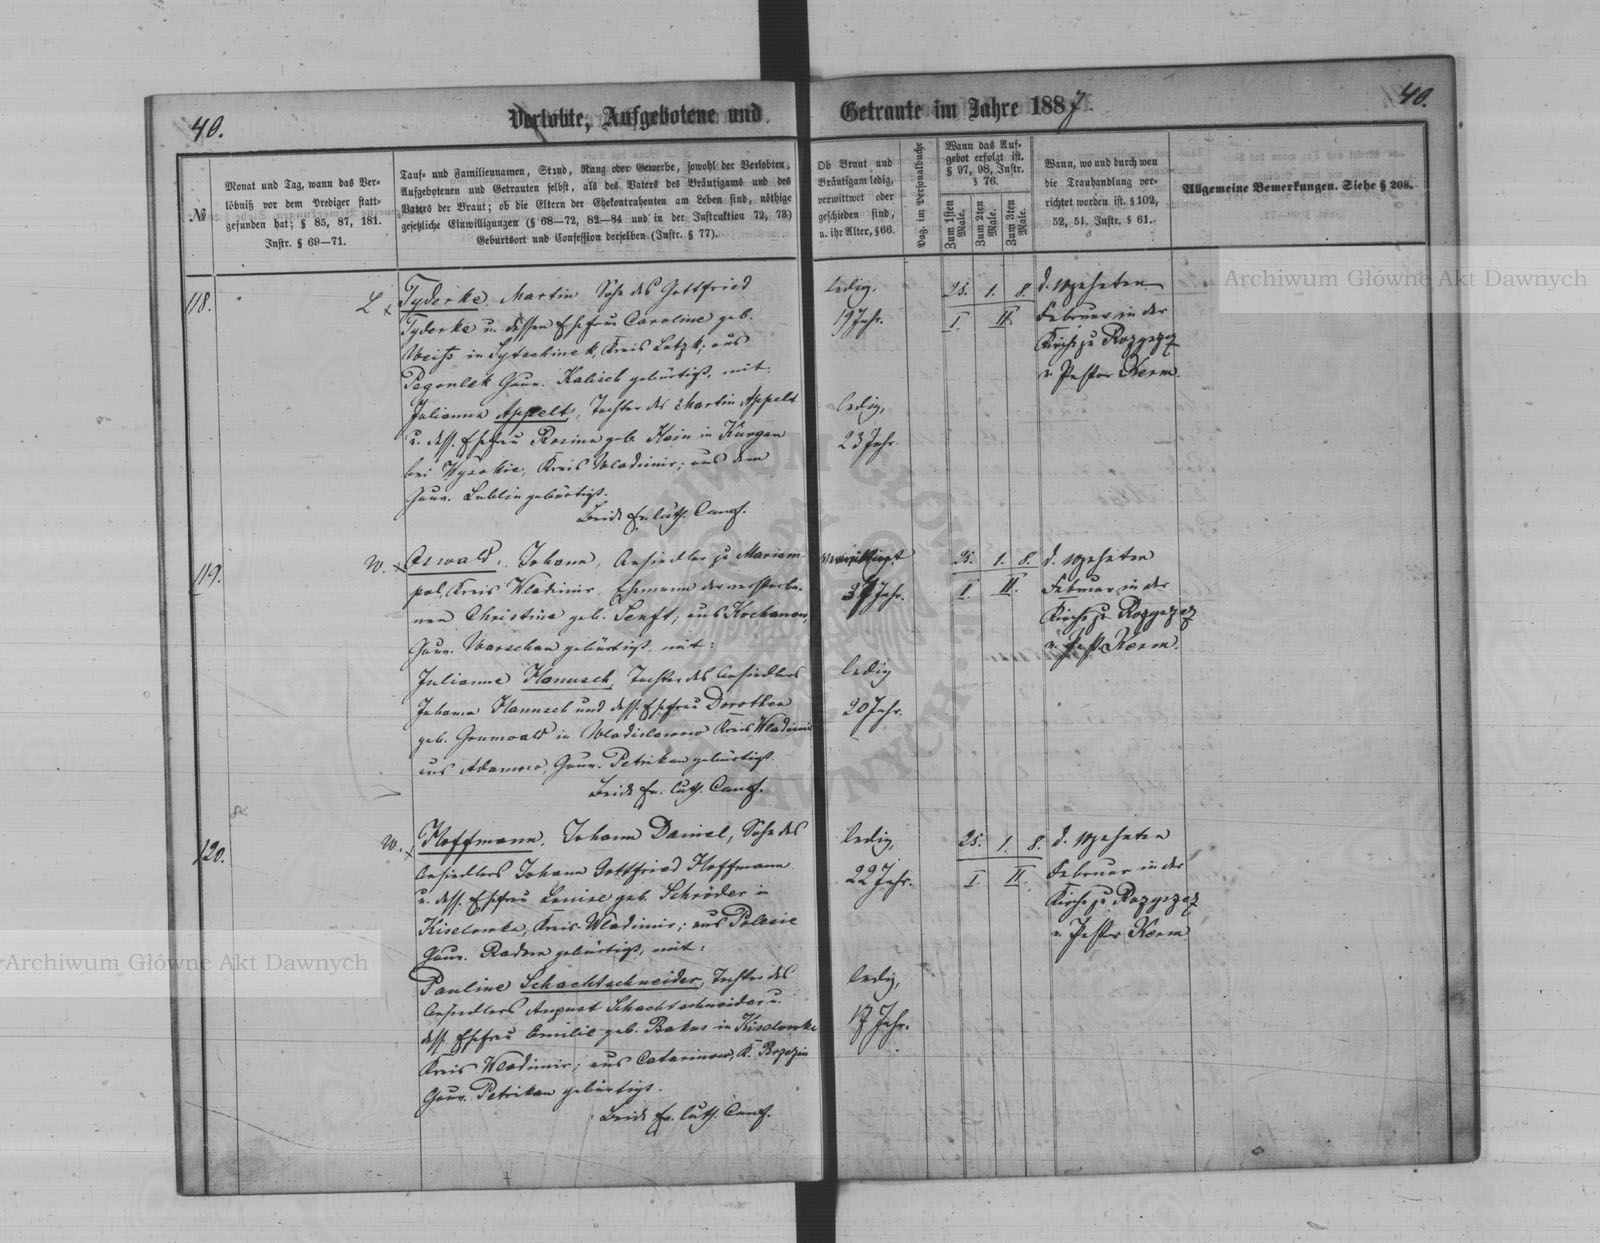 40.
Verlobte, Aufgebotene und
Getraute im Jahre 1887.
40.
№
Monat und Tag, wann das Ver-
löbniß vor dem Prediger statt-
gefunden hat; § 85, 87, 181.
Instr. § 69—71.
Tauf- und Familiennamen, Stand, Rang oder Gewerbe, sowohl der Verlobten,
Aufgebotenen und Getrauten selbst, als des Vaters des Bräutigams und des
Vaters der Braut; ob die Eltern der Ehekontrahenten am Leben sind, nöthige
gesetzliche Einwilligungen (§ 68—72, 82—84 und in der Instruktion 72, 73)
Geburtsort und Confession derselben (Instr. § 77).
Ob Braut und
Bräutigam ledig,
verwittwet oder
geschieden sind,
u. ihr Alter, § 66.
Pag. im Personalbuche
Wann das Auf-
gebot erfolgt ist.
§ 97, 98, Instr.
§ 76.
Zum 1sten
Male.
Zum 2ten
Male.
Zum 3ten
Male.
Wann, wo und durch wen
die Trauhandlung ver-
richtet worden ist. § 102,
52, 51. Instr. § 61.
Allgemeine Bemerkungen. Siehe § 208.
118.
L x
Tyderke, Martin, Sohn des Gottfried
Tyderke u. dessen Ehefrau Caroline geb.
Weiß in Sytschinek, Kreis Lutzk; aus
Pegonlek Gouv. Kalisch gebürtigt, mit:
Julianna Appelt, Tochter des Martin Appelt
u. dess. Ehefrau Rosina geb. Hein in Kurgan
bei Wysokie, Kreis Wladimir; aus dem
Gouv. Lublin gebürtigt.
Beide Ev. luth. Conf.
ledig.
19 Jahr.
ledig,
23 Jahr.
25. 1. 8.
I. II.
d. zehnten
Februar in der
Kirche zu Rozyszcz
v. Pastor Kerm.
119.
W. x
Oswald, Johann, Ansiedler zu Mariam-
pol, Kreis Wladimir, Ehemann der verstorbe-
nen Christine geb. Senft; aus Kochanow,
Gouv. Warschau gebürtigt, mit:
Julianne Hanusch, Tochter des Ansiedlers
Johann Hanusch und dess. Ehefrau Dorothea
geb. Grunwald in Wladislawow Kreis Wladimir
aus Adamow, Gouv. Petrikau gebürtigt.
Beide Ev. luth. Conf.
37 Jahr.
ledig
20 Jahr.
25. 1. 8.
I. II.
d. zehnten
Februar in der
Kirche zu Rozyszcz
v. Past. Kerm.
120.
W. x
Hoffmann, Johann Daniel, Sohn des
Ansiedlers Johann Gottfried Hoffmann
u. dess. Ehefrau Louise geb. Schröder in
Kiselowka, Kreis Wladimir; aus Polesie
Gouv. Radom gebürtigt, mit:
Pauline Schachtschneider, Tochter des
Ansiedlers August Schachtschneider u.
dess. Ehefrau Emilie geb. Batus in Kiselowka
Kreis Wladimir; aus Catarinow, K. Brzezin
Gouv. Petrikau gebürtigt.
Beide Ev. luth. Conf.
ledig,
22 Jahr.
ledig,
17 Jahr.
25. 1. 8.
I. II.
d. zehnten
Februar in der
Kirche zu Rozyszcz
v. Pastor Kerm
Archiwum Główne Akt Dawnych
Archiwum Główne Akt Dawnych